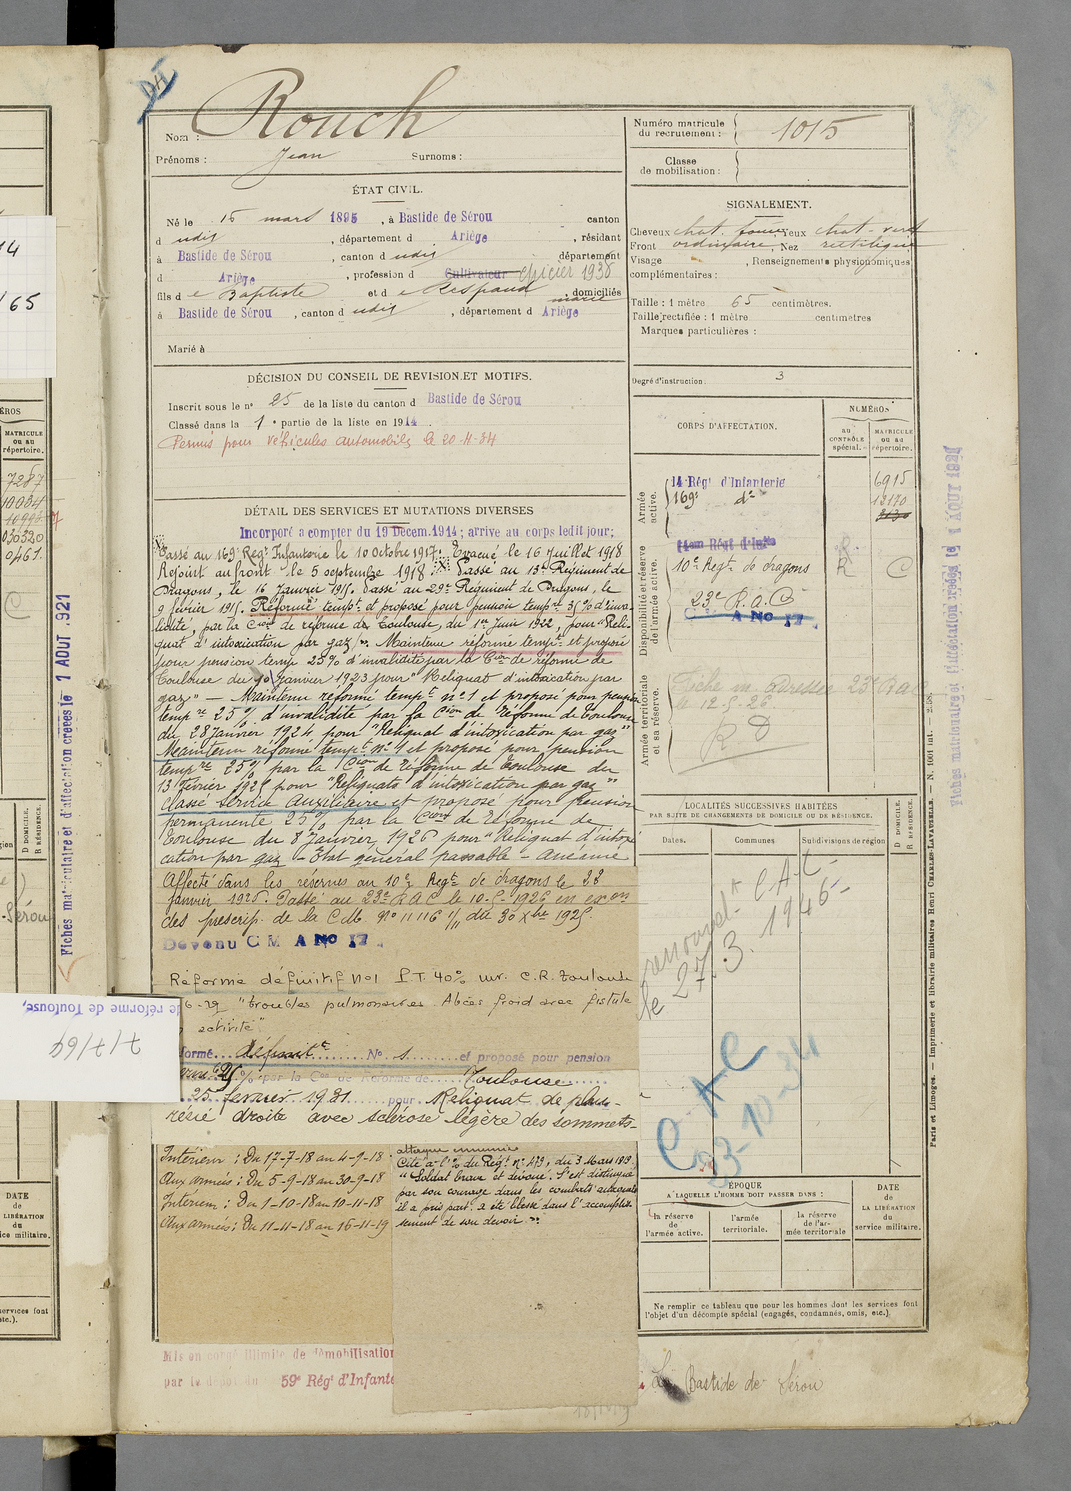 Rouch
Nom :
Prénoms : Jean Surnoms :
ÉTAT CIVIL.
Né le 15 mars 1895, à Bastide de Sérou canton
d udit, département d Ariège, résidant
à Bastide de Sérou, canton d udit département
d Ariège, profession d Cultivateur épicier 1938
fils d e Baptiste et d e Respaud marie, domiciliés
à Bastide de Sérou, canton d udit, département d Ariège
Marié à
DÉCISION DU CONSEIL DE REVISION ET MOTIFS.
Inscrit sous le n° 25 de la liste du canton d Bastide de Sérou
Classé dans la 1e partie de la liste en 1914.
Permis pour véhicules automobiles le 20-11-34
DÉTAIL DES SERVICES ET MUTATIONS DIVERSES
Incorporé a compter du 19 Décem. 1914; arrive au corps ledit jour;
Passé au 169e Regt Infanterie le 10 octobre 1917. Evacué le 16 Juillet 1918
Rejoint au front le 5 septembre 1918. Passé au 13e Régiment de
Dragons, le 16 Janvier 1919. Passé au 29e Régiment de Dragons, le
9 février 1919. Réformé tempre et proposé pour pension tempre 35% d'inva-
lidité, par la Cion de réforme de Toulouse, du 1er Juin 1922, pour "Reli-
quat d'intoxication par gaz". Maintenu réformé tempre et proposé
pour pension temp 25% d'invalidité par la Cion de réforme de
Toulouse du 10 Janvier 1923 pour "Reliquat d'intoxication par
gaz" — Maintenu réformé tempre n°1 et proposé pour pension
tempre 25% d'invalidité par la Cion de réforme de Toulouse
du 28 Janvier 1924 pour "Reliquat d'intoxication par gaz"
Maintenu réformé tempre n°1 et proposé pour pension
tempre 25% par la Cion de réforme de Toulouse du
13 Février 1925 pour "Reliquats d'intoxication par gaz"
classé service auxiliaire et proposé pour pension
permanente 25% par la Cion de réforme de
Toulouse du 8 Janvier 1926 pour "Reliquat d'intoxi-
cation par gaz - Etat général passable - anémie
Affecté dans les réserves au 10e Regt de dragons le
Janvier 1925. Passé au 23e R A C le 10-5-1926 en exon
des prescrip. de la C.M. N° 11116 1/11 du 30 Xbre 1925
Devenu C M A NO 17.
Réformé définitif N°1 P.T. 40% inv. C.R. Toulouse
6-29 "troubles pulmonaires. Abcès froid avec fistule
activité"
formé définitt N° 1 et proposé pour pension
% par la Con de Réforme de Toulouse
25 fevrier 1931 pour Reliquat de pleu-
résie droite avec sclérose légère des sommets-
Intérieur : Du 17-7-18 au 4-9-18
Aux armées : Du 5-9-18 au 30-9-18
Intérieur : Du 1-10-18 au 10-11-18
Aux armées : Du 11-11-18 au 16-11-19
Cité à l'o/ du Régt n° 473, du 3 Mars 1919
"Soldat brave et dévoué. S'est distingué
par son courage dans les combats auxquels
il a pris part. a été blessé dans l'accomplis-
sement de son devoir"
Mis en congé illimité de démobilisation
par le dépôt du 59e Régt d'Infante
Numéro matricule du recrutement : 1015
Classe de mobilisation :
SIGNALEMENT.
Cheveux chat. foncé, Yeux chat-vert
Front ordinaire, Nez rectiligne
Visage, Renseignements physionomiques
complémentaires :
Taille : 1 mètre 65 centimètres.
Taille rectifiée : 1 mètre centimètres
Marques particulières :
Degré d'instruction : 3
CORPS D'AFFECTATION.
NUMÉROS
au CONTRÔLE spécial.
MATRICULE ou au répertoire.
Armée active.
14 Régt d'Infanterie 6915
169e do 12170
Disponibilité et réserve de l'armée active.
14em Régt d'Infie
10e Regt de dragons R C
23e R.A.C
C M A NO 17.
Armée territoriale et sa réserve.
Fiche m. adressée 23e RAC
le 12-5-26
R D
LOCALITÉS SUCCESSIVES HABITÉES
PAR SUITE DE CHANGEMENTS DE DOMICILE OU DE RÉSIDENCE.
Dates.
Communes
Subdivisions de région
D DOMICILE. R RÉSIDENCE.
renouvelt C.A.C
le 27.3.1946
C.A.C
23-10-34
ÉPOQUE
A LAQUELLE L'HOMME DOIT PASSER DANS :
la réserve de l'armée active.
l'armée territoriale.
la réserve de l'armée territoriale
DATE de LA LIBÉRATION du service militaire.
Ne remplir ce tableau que pour les hommes dont les services font
l'objet d'un décompte spécial (engagés, condamnés, omis, etc.).
La Bastide de Sérou
Paris et Limoges. — Imprimerie et librairie militaires Henri CHARLES-LAVAUZELLE.
Fiches matriculaire et d'affectation créées le 1 AOUT 1921
Fiches matriculaire et d'affectation créées le 1 AOUT 1921
65
MATRICULE
ou au
répertoire.
7287
C
de réforme de Toulouse,
7/7/69
DATE
de
LA LIBÉRATION
du
ice militaire.
services font
etc.).